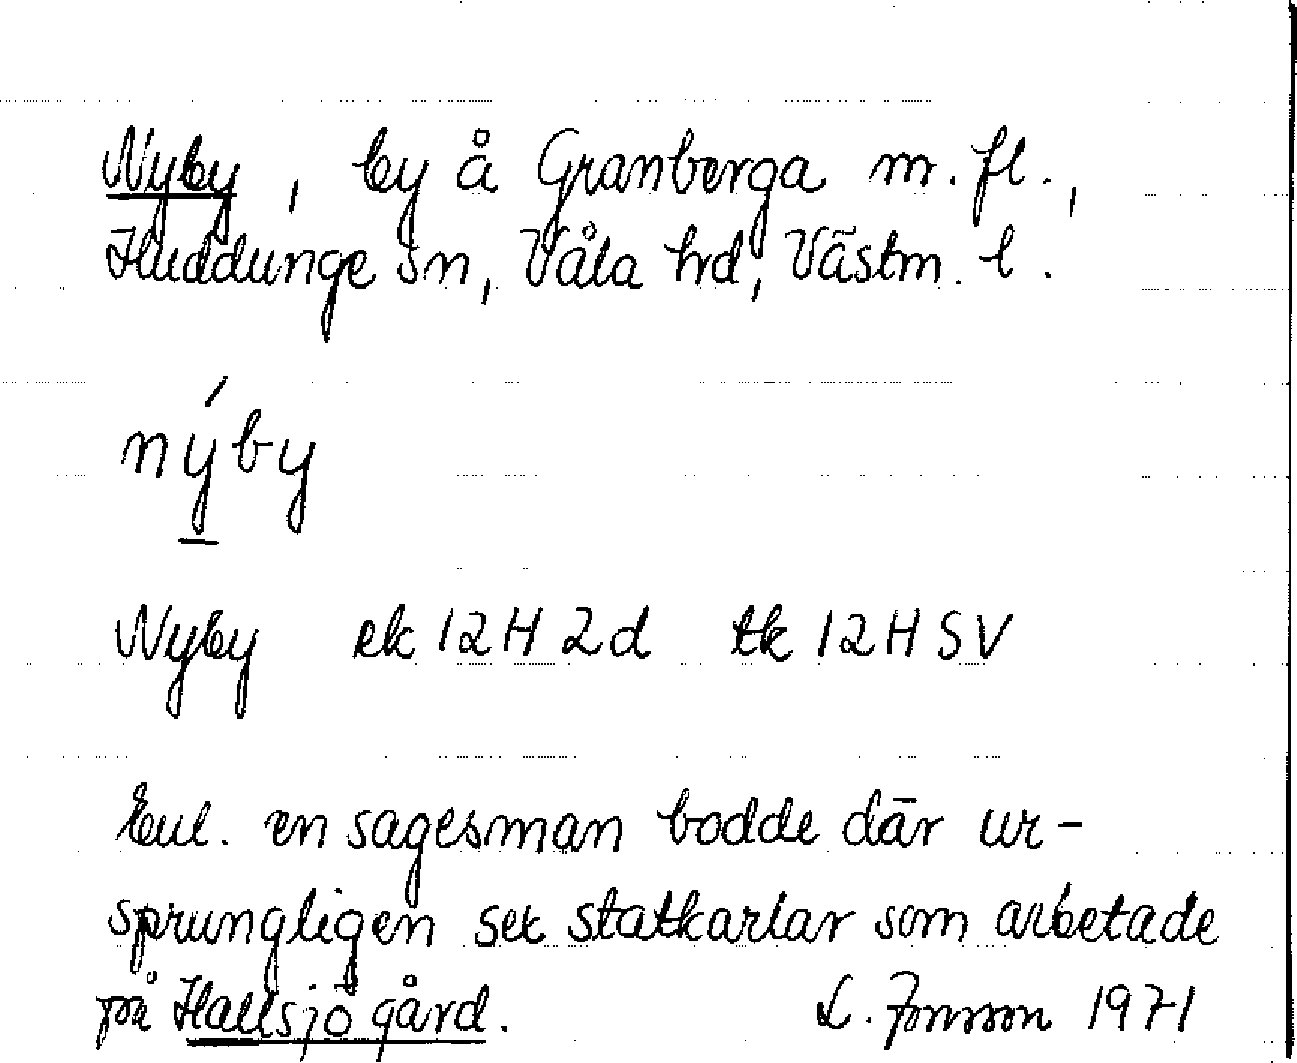 Nyby, by å Granberga m.fl.,
Huddunge sn, Våla hrd, Västm. l.
nýby
Nyby ek 12H2d tk 12HSV
Enl. en sagesman bodde där ur-
sprungligen sex statkarlar som arbetade
på Hallsjö gård. L. Jonsson 1971